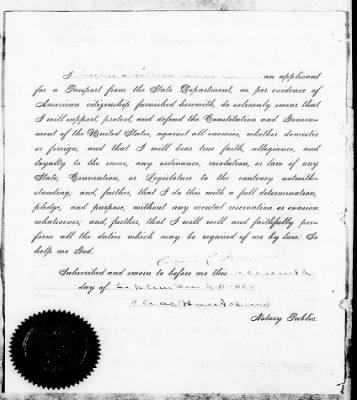 I an applicant
for a Passport from the State Department, as per evidence of
American citizenship furnished herewith, do solemnly swear that
I will support, protect, and defend the Constitution and Govern-
ment of the United States, against all enemies, whether domestic
or foreign, and that I will bear true faith, allegiance, and
loyalty to the same, any ordinance, resolution, or law of any
State, Convention, or Legislature to the contrary notwith-
standing; and, further, that I do this with a full determination,
pledge, and purpose, without any mental reservation or evasion
whatsoever; and, further, that I will well and faithfully per-
form all the duties which may be required of me by law. So
help me God.
Subscribed and sworn to before me this
day of September
Notary Public.